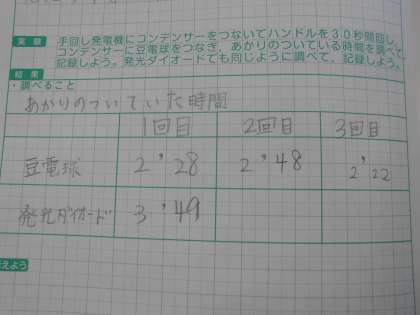 実験 手回し発電機にコンデンサーをつないでハンドルを30秒間回し、
コンデンサーに豆電球をつなぎ、あかりのついている時間を調べて
記録しよう。発光ダイオードでも同じように調べて、記録しよう。
結果
・調べること
あかりのついていた時間
1回目 2回目 3回目
豆電球 2'28 2'48 2'22
発光ダイオード 3'49
えよう